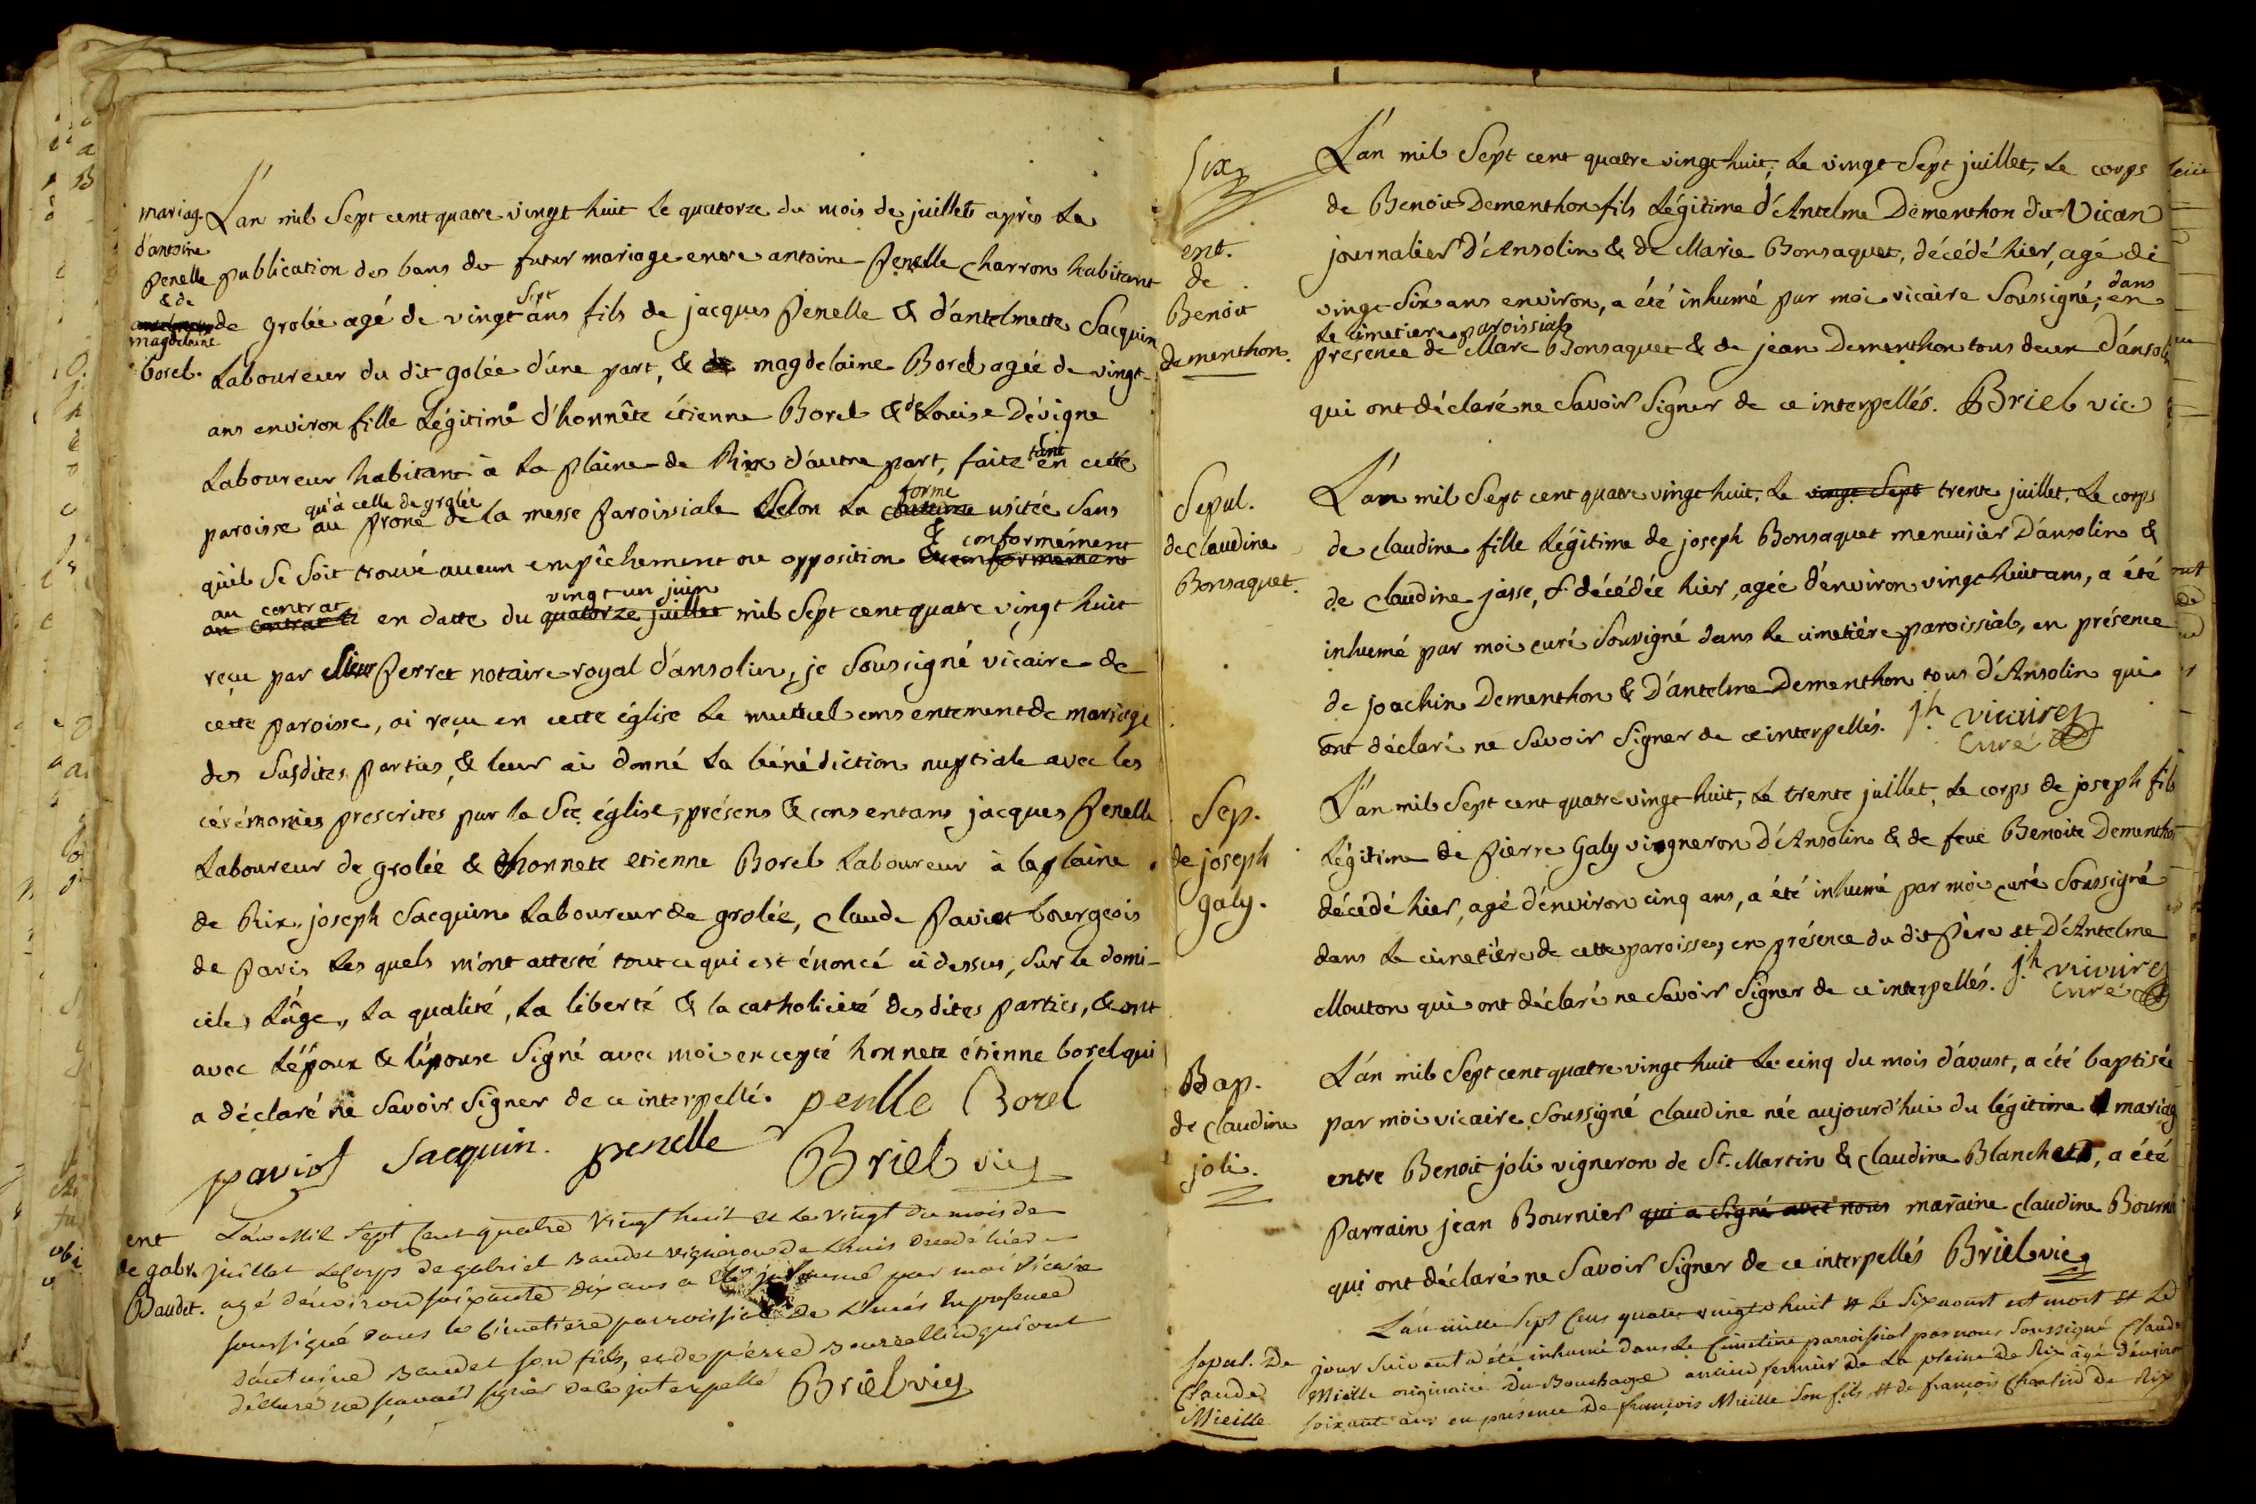 mariag.
d'antoine
penelle
& de
magdelaine
borel.
L'an mil Sept cent quatre vingt huit le quatorze du mois de juillet après la
publication des bans du futur mariage entre antoine Penelle charron habitant
de grolée agé de vingt Sept ans fils de jacques Penelle & d'antelmette Sacquin
Laboureur du dit golée d'une part, & de magdelaine Borel agée de vingt
ans environ fille Légitime d'honnête étienne Borel & de Louise Dévigne
Laboureur habitant à la plaine de Rix d'autre part, faite tant en cette
paroisse qu'à celle de grolée au prone de la messe paroissiale Selon la forme usitée Sans
qu'il Se Soit trouvé aucun empêchement ou opposition & conformément
au contrat en datte du vingt un juin quatorze juillet mil Sept cent quatre vingt huit
reçu par Sieur Perret notaire royal d'ansolin, je Soussigné vicaire de
cette paroisse, ai reçu en cette église le mutuel consentement de mariage
des Susdites parties, & leur ai donné la bénédiction nuptiale avec les
cérémonies prescrites par la Ste. église, présens & consentans jacques Penelle
Laboureur de grolée & honnete etienne Borel Laboureur à la plaine
de Rix, joseph Sacquin Laboureur de grolée, claude Paviot bourgeois
de Paris lesquels m'ont attesté tout ce qui est énoncé ci dessus, Sur le domi-
cile, l'âge, la qualité, la liberté & la catholicité desdites parties, & ont
avec l'époux & l'épouse Signé avec moi excepté honnete étienne borel qui
a déclaré ne Savoir Signer de ce interpellé. penlle Borel
paviot Sacquin. penelle Briel vic
ent
de gabr.
Baudet.
L'an Mil Sept Cent quatre Vingt huit et le vingt du mois de
juillet le Corps de gabriel Baudet vigneron de Lhuis decedé hier
agé d'environ soixante dix ans a été inhumé par moi vicaire
soussigné dans le Cimetiere parroissial de Lhuis En presence
d'antoine Baudet son fils, et de pierre Bourcellin qui ont
déclaré ne sçavoir signer de ce interpellé Briel vic
Six
ent.
de
Benoit
dementhon.
L'an mil Sept cent quatre vingt huit, le vingt Sept juillet, le corps
de Benoit Dementhon fils Légitime d'Antelme Dementhon dit Vican
journalier d'Ansolin & de Marie Bonsaquet, décédé hier, agé de
vingt Six ans environ, a été inhumé par moi vicaire Soussigné, dans
le cimetiere paroissial en
présence de Marc Bonsaquet & de jean Dementhon tous deux d'ansolin
qui ont déclaré ne Savoir Signer de ce interpellés. Briel vic
Sepul.
de claudine
Bonsaquet.
L'an mil Sept cent quatre vingt huit, le vingt Sept trente juillet, le corps
de claudine fille Légitime de joseph Bonsaquet menuisier D'ansolin &
de claudine jasse, décédée hier, agée d'environ vingt huit ans, a été
inhumé par moi curé Soussigné dans le cimetière paroissial, en présence
de joachin Dementhon & D'antelme Dementhon tous d'Ansolin qui
ont déclaré ne Savoir Signer de ce interpellés. jh vicaire
curé
Sep.
de joseph
galy.
L'an mil Sept cent quatre vingt huit, le trente juillet, le corps de joseph fils
Légitime de Pierre Galy vigneron d'Ansolin & de feue Benoite Dementhon
décédé hier, agé d'environ cinq ans, a été inhumé par moi curé Soussigné
dans le cimetière de cette paroisse, en présence du dit Père et D'Antelme
Mouton qui ont déclaré ne Savoir Signer de ce interpellés. jh vicaire
curé
Bap.
de claudine
joli.
L'an mil Sept cent quatre vingt huit le cinq du mois d'avust, a été baptisée
par moi vicaire Soussigné claudine née aujourd'hui du légitime mariag
entre Benoit joli vigneron de St. Martin & claudine Blanchet, a été
Parrain jean Bournier qui a Signé avec nous maraine claudine Bourni
qui ont déclaré ne Savoir Signer de ce interpellés Briel vic
sepul. De
Claude
Mieille
L'an mille Sept Cens quatre vingts huit et le Six aoust est mort et le
jour Suivant a été inhumé dans le Cimetière parroissial par nous Soussigné Claude
Mieille originaire Du Bouchage ancien fermier de la pleine de Rix agé d'environ
soixante ans en présence de françois Mieille Son fils et de françois Chantin de Rix